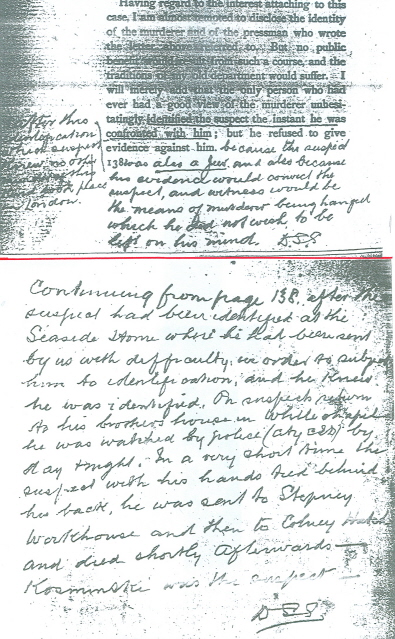 Having regard to the interest attaching to this
case, I am almost tempted to disclose the identity
of the murderer and of the pressman who wrote
the letter above referred to. But no public
benefit would result from such a course, and the
traditions of my old department would suffer. I
will merely add that the only person who had
ever had a good view of the murderer unhesi-
tatingly identified the suspect the instant he was
confronted with him; but he refused to give
evidence against him. because the suspect
138 was also a Jew and also because
his evidence would convict the
suspect, and witness would be
the means of murderer being hanged
which he did not wish to be
left on his mind. D.S.S.
After this
identification
which suspect
knew, no other
murder of this
kind took place
in London.
Continuing from page 138. after the
suspect had been identified at the
Seaside Home where he had been sent
by us with difficulty, in order to subject
him to identification, and he knew
he was identified. On suspect's return
to his brother's house in Whitechapel
he was watched by police (City CID) by
day & night. In a very short time the
suspect with his hands tied behind
his back, he was sent to Stepney
Workhouse and then to Colney Hatch
and died shortly afterwards —
Kosminski was the suspect —
D.S.S.